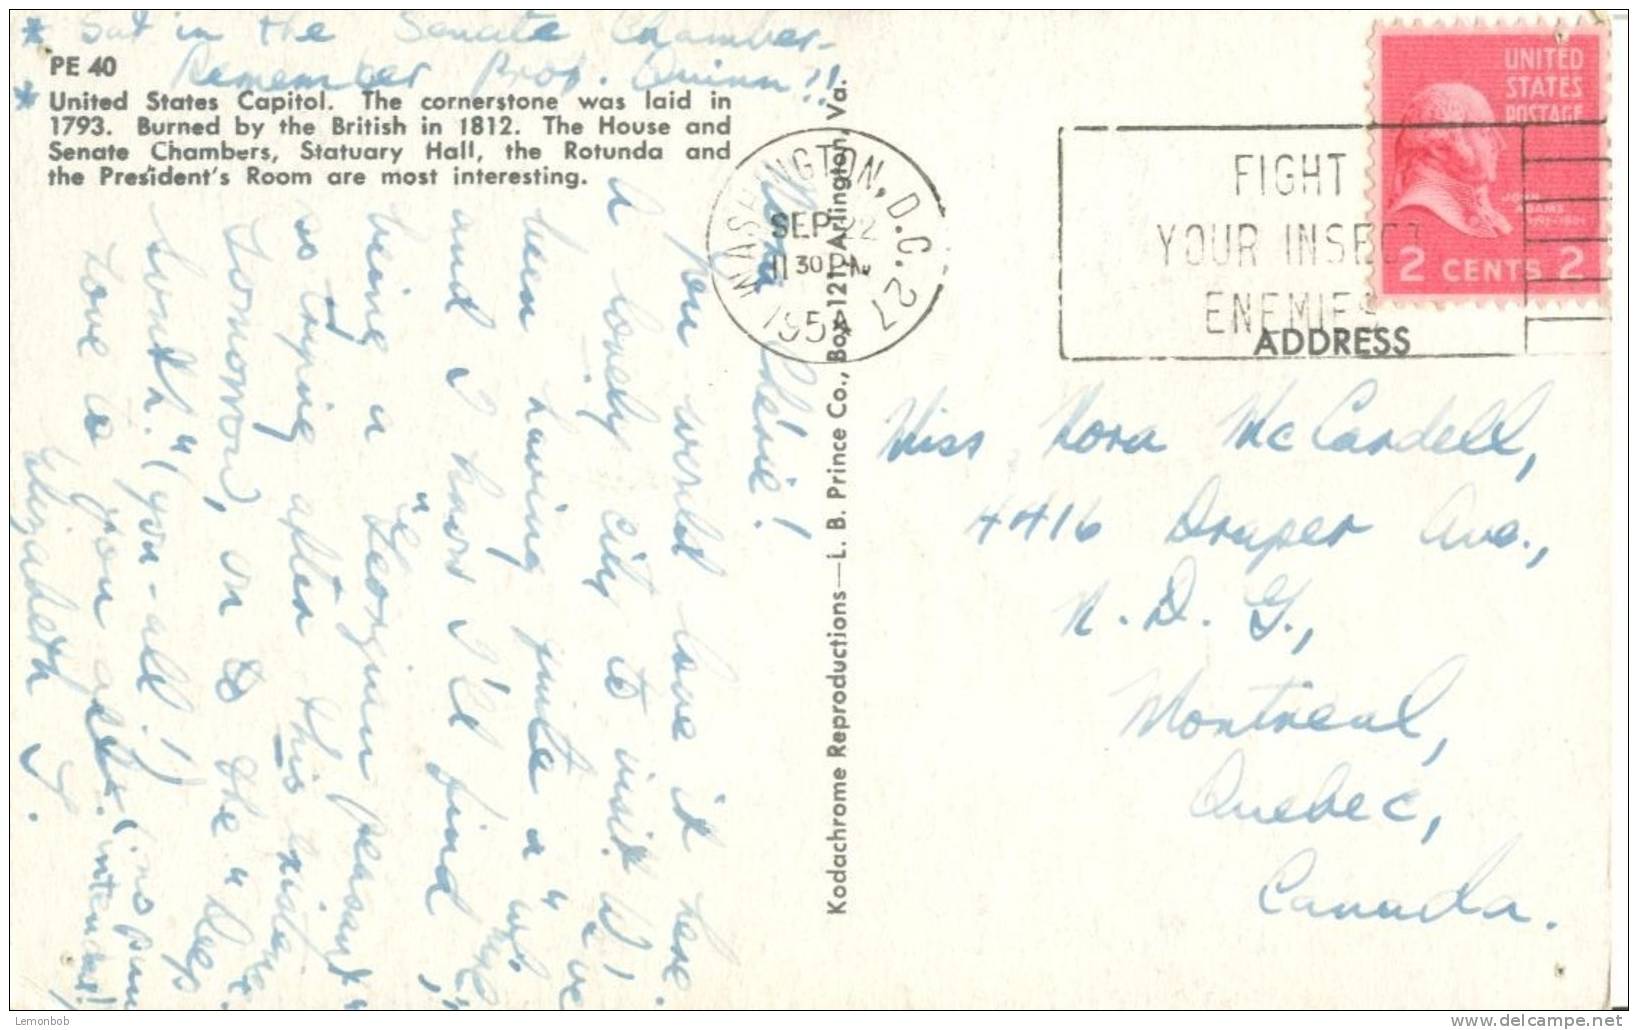 * Sat in the Senate Chamber-
Remember Prof. Quinn!!
PE 40
* United States Capitol. The cornerstone was laid in
1793. Burned by the British in 1812. The House and
Senate Chambers, Statuary Hall, the Rotunda and
the President's Room are most interesting.
Nora chérie!
You would love it here.
A lovely city to visit. We've
been having quite a "wk"
and I know I'll find
being a "Georgian peasant"
as after this
tomorrow, on to the "Deep
South." (you-all!)
Love to you all. (no pun intended!)
Elizabeth
Kodachrome Reproductions—L. B. Prince Co., Box 121, Arlington, Va.
WASHINGTON, D.C. 27
SEP 22
11 30 PM
195
FIGHT
YOUR INSECT
ENEMIES
UNITED
STATES
POSTAGE
JOHN
ADAMS
2 CENTS 2
ADDRESS
Miss Nora McCardell,
4416 Draper Ave.,
N.D.G.,
Montreal,
Quebec,
Canada.
Lemonbob
delcampe.net